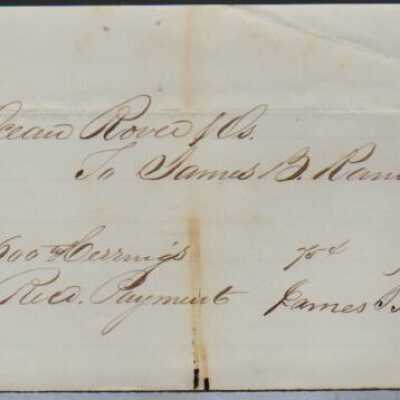 Ocean Rover & Os.
To James B. Ran
600 lb Herrings 75¢
Recd. Payment James B